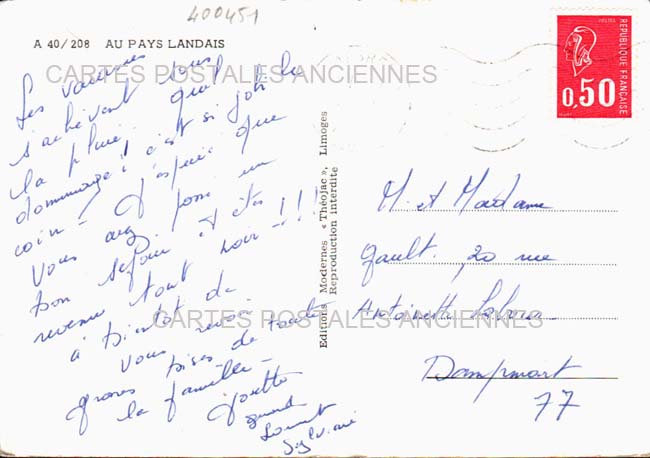 400451
A 40/208 AU PAYS LANDAIS
CARTES POSTALES ANCIENNES
Les vacances
s'achèvent sous
la pluie, quel
dommage! c'est si joli
coin - J'espère que
vous avez passé un
bon séjour et êtes
revenu tout noir - !!!
à bientôt de
vous revoir
grosses bises de toute
la famille -
Josette
Laurent
Sylviane
Editions Modernes « Théojac », Limoges
Reproduction Interdite
REPUBLIQUE FRANÇAISE
POSTES
0,50
M et Madame
Gault. 20 rue
Antoinette
CARTES POSTALES ANCIENNES
Dampmart
77